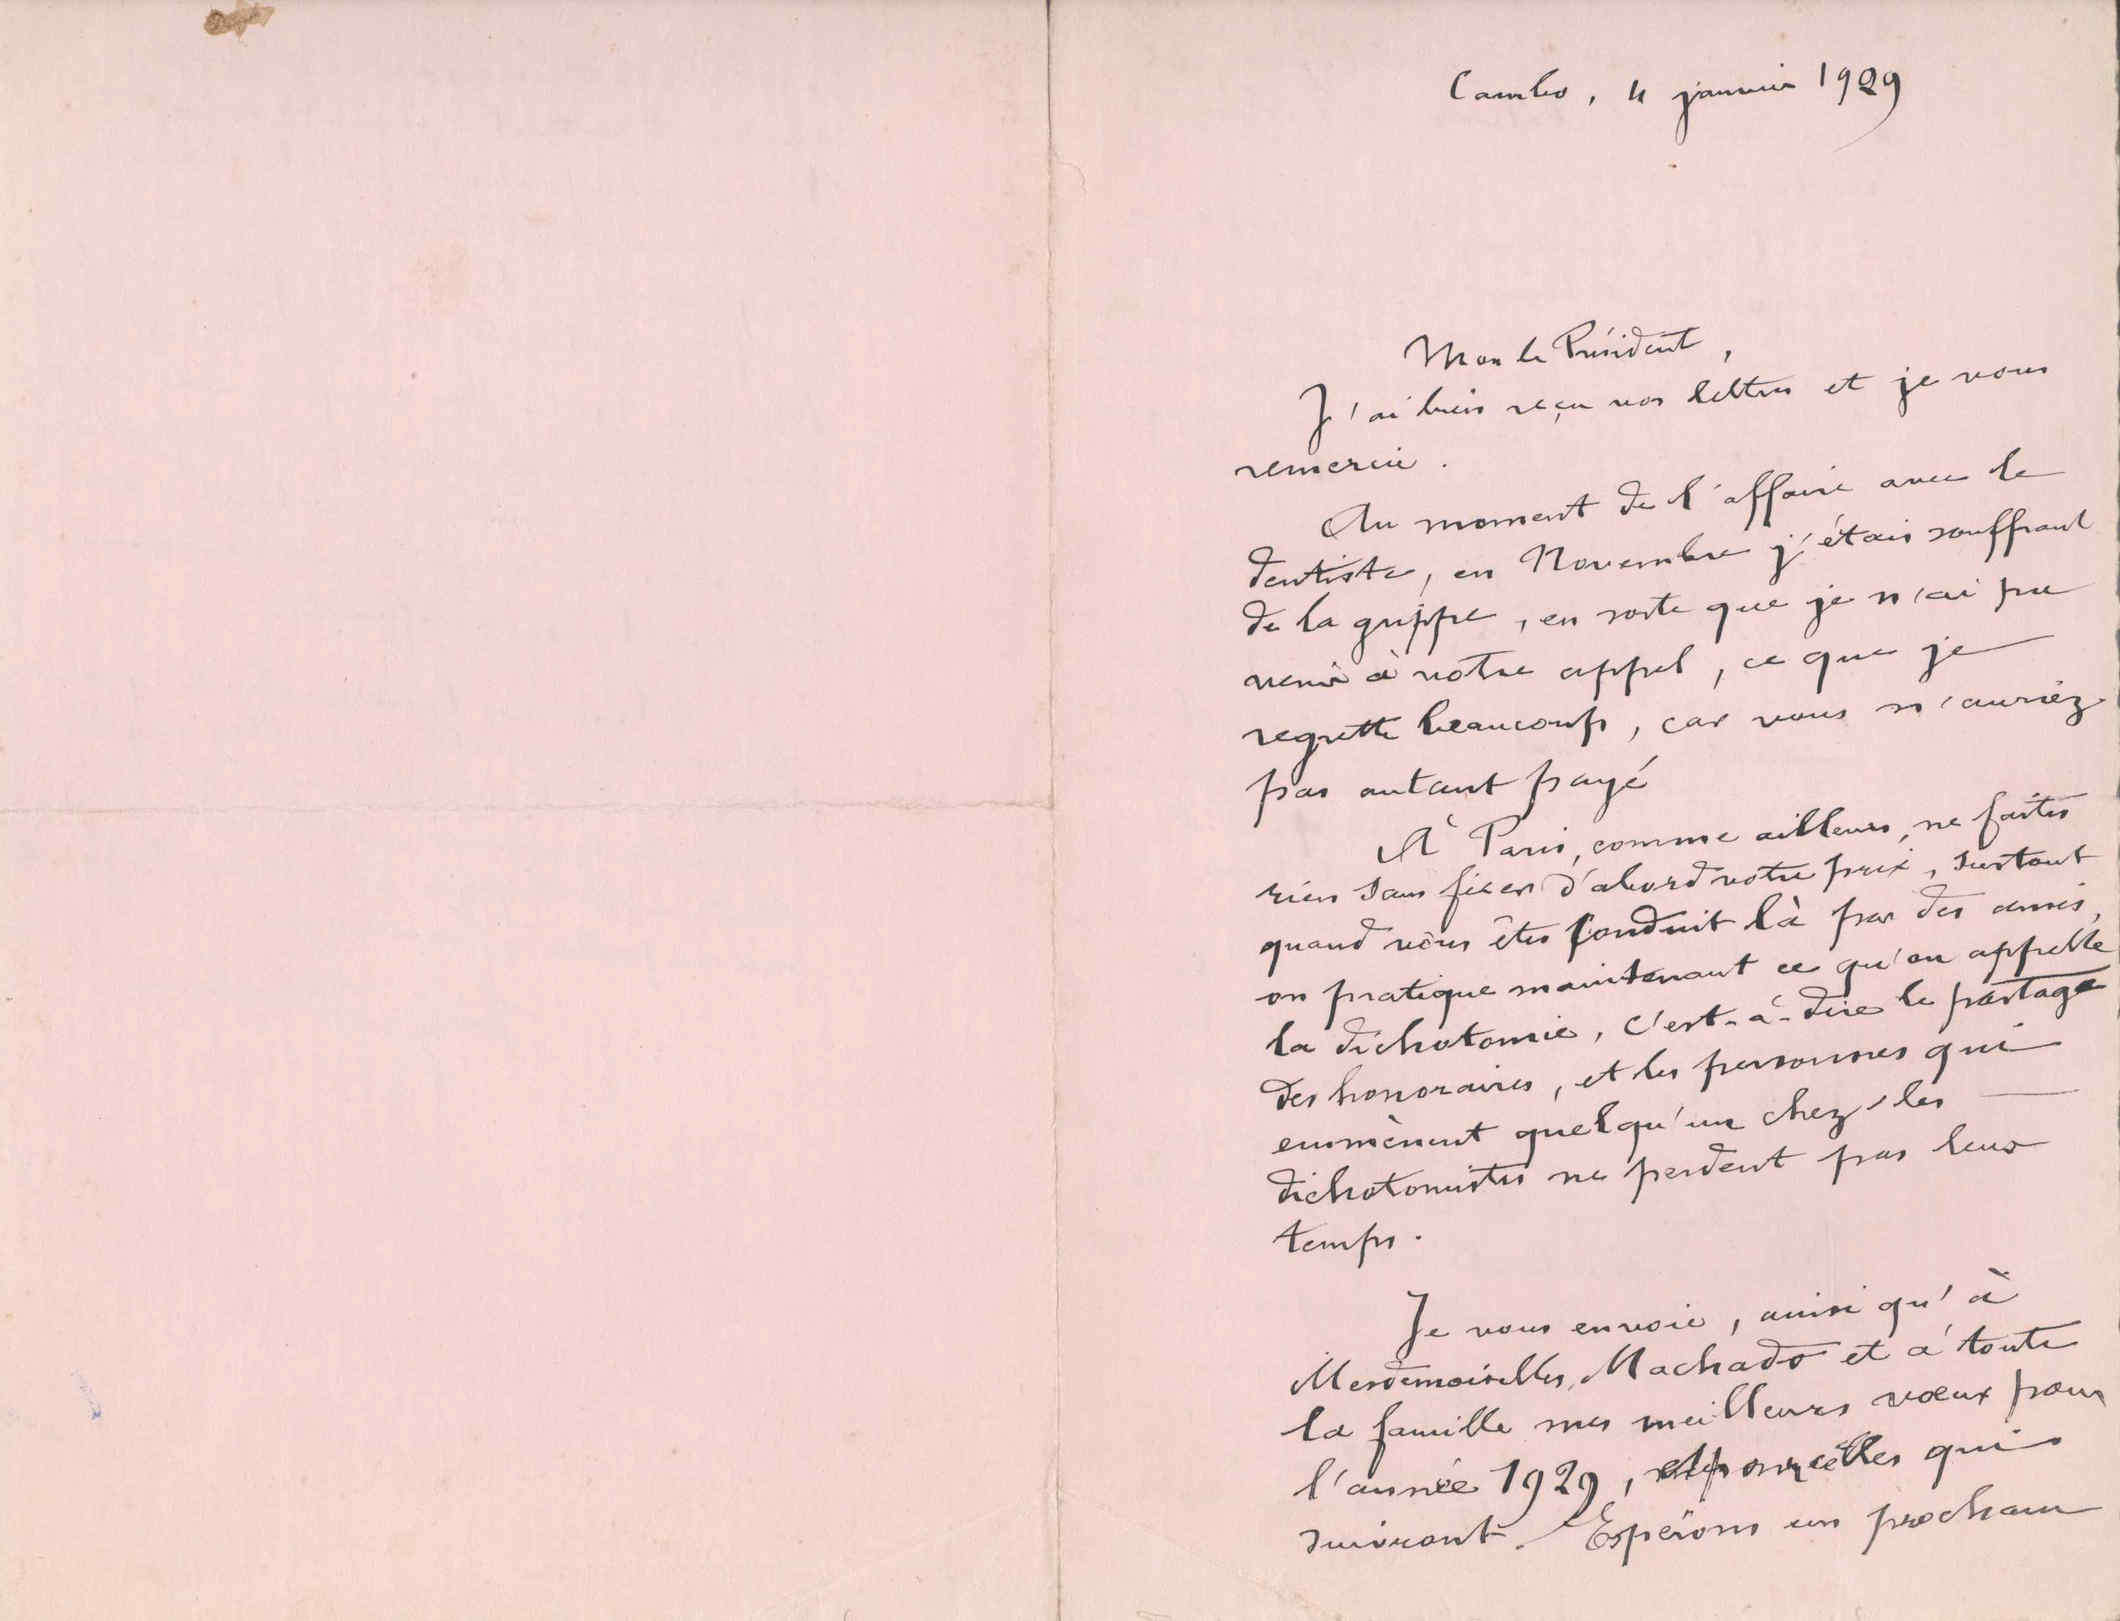 Cambo, 4 janvier 1929
Mon le Président,
J'ai bien reçu vos lettres et je vous
remercie.
Au moment de l'affaire avec le
dentiste, en Novembre j'étais souffrant
de la grippe, en sorte que je n'ai pu
venir à votre appel, ce que je
regrette beaucoup, car vous n'auriez
pas autant payé
À Paris, comme ailleurs, ne faites
rien sans fixer d'abord votre prix, surtout
quand vous êtes conduit là par des amis,
on pratique maintenant ce qu'on appelle
la dichotomie, c'est-à-dire le partage
des honoraires, et les personnes qui
emmènent quelqu'un chez les
dichotomistes ne perdent pas leur
temps.
Je vous envoie, ainsi qu'à
Mesdemoiselles Machado et à toute
la famille mes meilleurs vœux pour
l'année 1929, et pour celles qui
suivront. Espérons un prochain